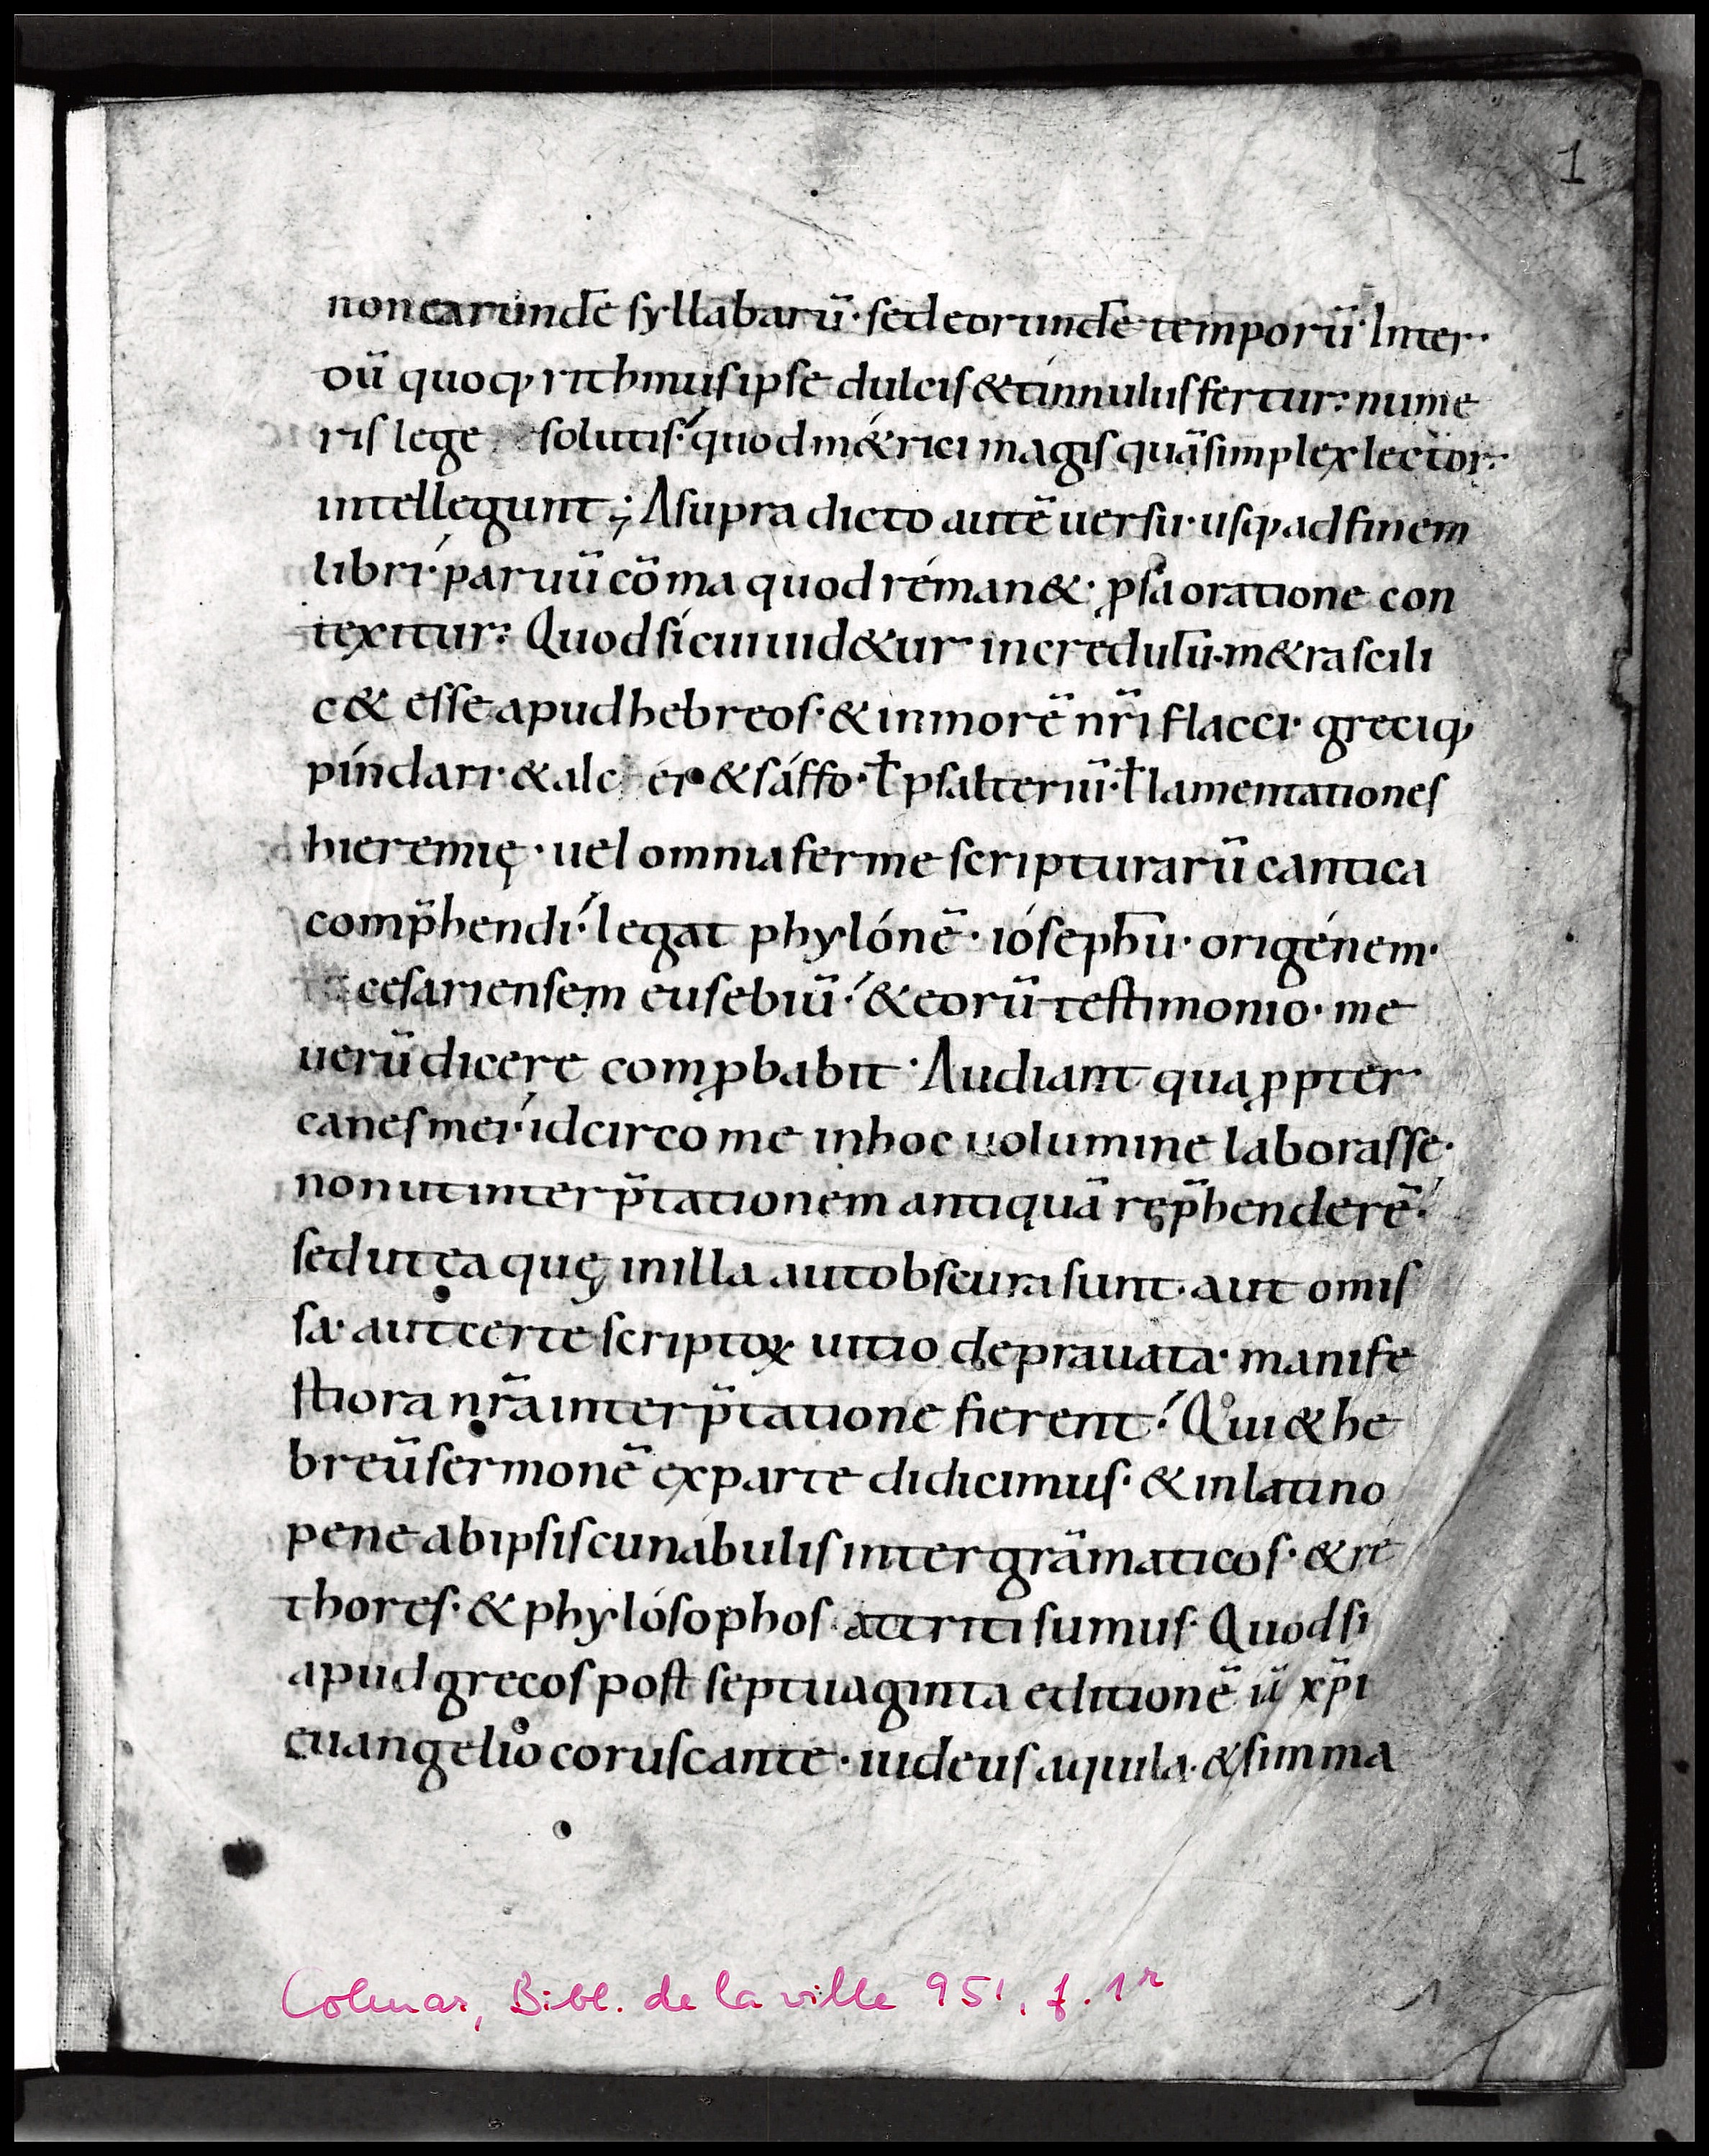 1
non earundē syllabarū· sed eorundē temporū· Inter·
dū quoq; rithmus ipse dulcis & tinnulus fertur: nume
ris lege solutis· quod m&rici magis quā simplex lector·
intellegunt; A supra dicto autē uersu· usq; ad finem
libri· paruū cōma quod reman&· p̱sa oratione con
texitur: Quod si cui uid&ur incredulū· m&ra scili
c& esse apud hebreos· & in morē nr̄i flacci· greciq;
pindari· & alc ei & saffo· ł psalteriū· ł lamentationes
hieremię· uel omnia ferme scripturarū cantica
comp̄hendi· legat phylonē· iosephū· origenem·
cesariensem eusebiū· & eorū testimonio· me
uerū dicere comp̱babit· Audiant quap̱pter
canes mei· idcirco me in hoc uolumine laborasse·
non ut interp̄tationem antiquā rep̄henderē·
sed ut ea quę in illa aut obscura sunt· aut omis
sa· aut certe scriptoꝝ uitio deprauata· manife
stiora nr̄a interp̄tatione fierent· Qui & he
breū sermonē ex parte didicimus· & in latino
pene ab ipsis cunabulis inter grāmaticos· & re
thores· & phylosophos attriti sumus· Quod si
apud grecos post septuaginta editionē iā xp̄i
euangelio coruscante· iudeus aquila· & simma
Colmar, Bibl. de la ville 951, f. 1r